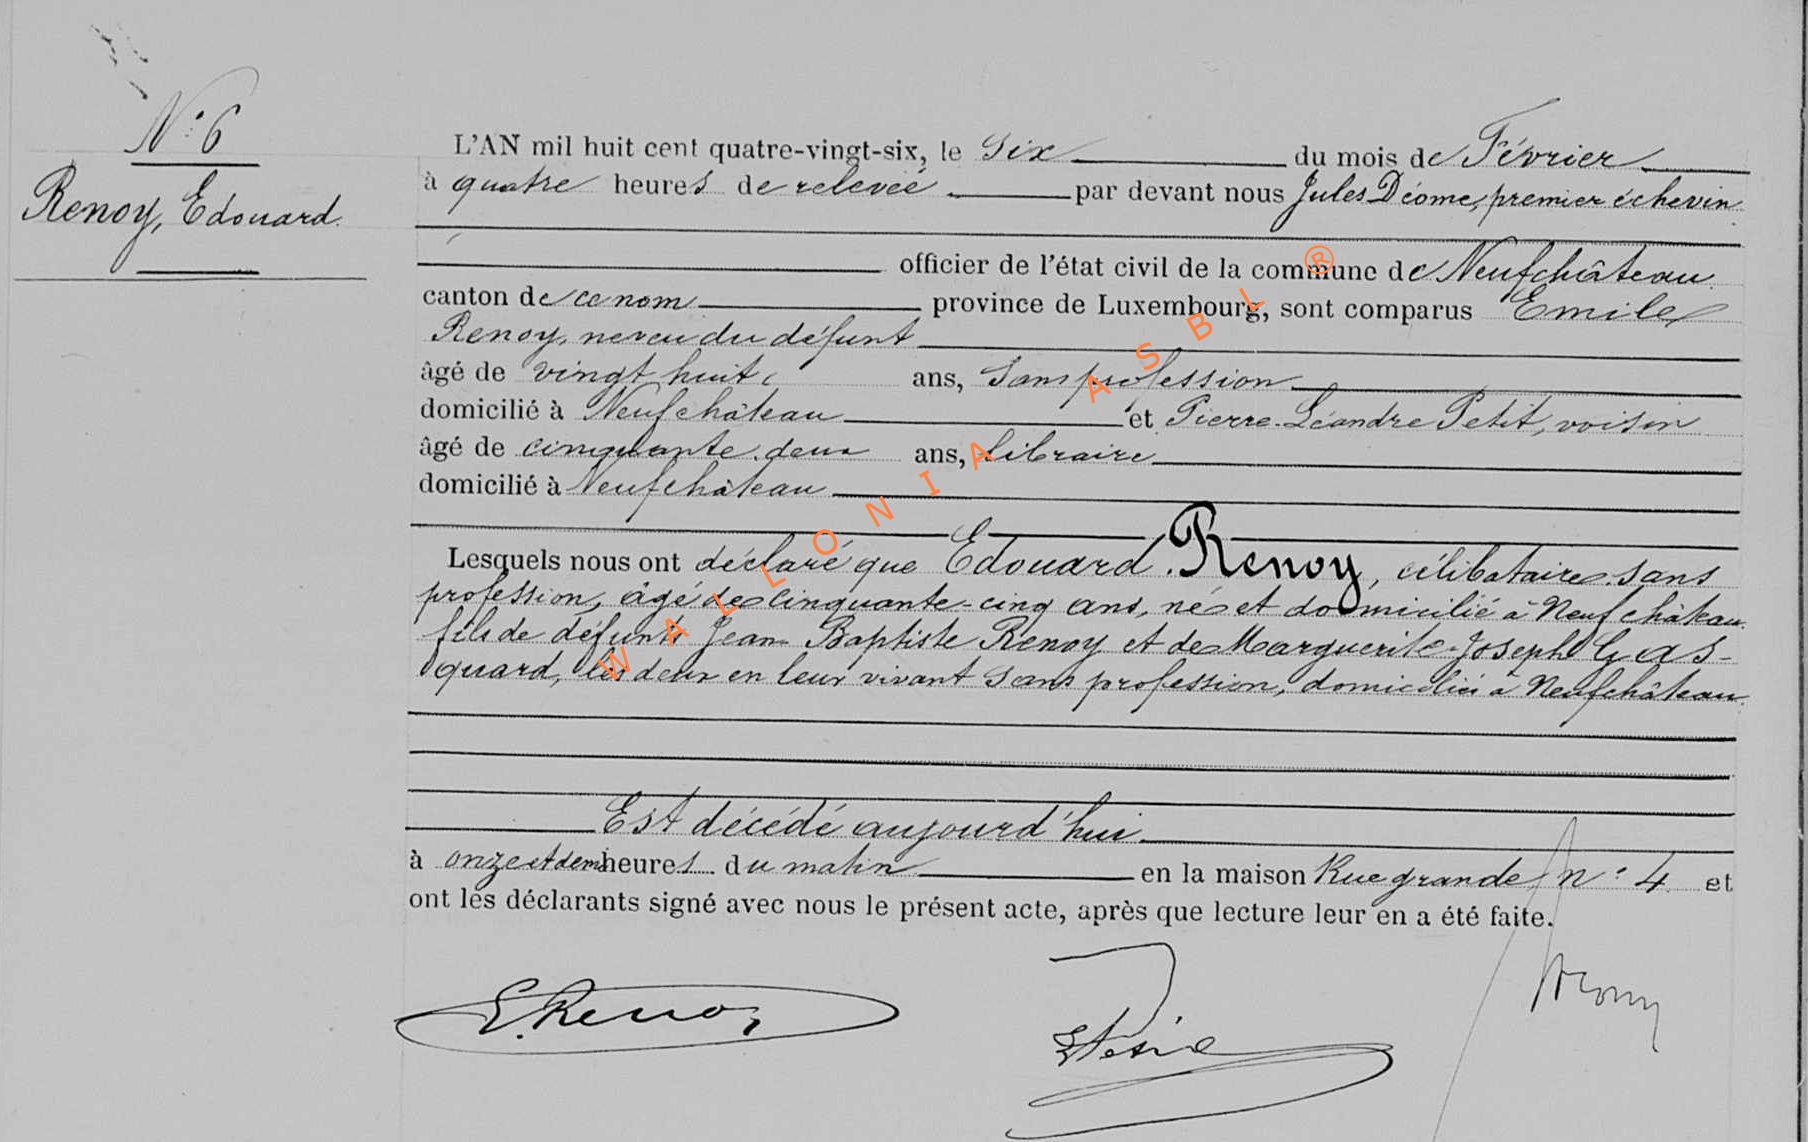 N° 6
Renoy, Edouard.
L'AN mil huit cent quatre-vingt-six, le Six du mois de Février
à quatre heures de relevée par devant nous Jules Déome, premier échevin
officier de l'état civil de la commune de Neufchâteau
canton de ce nom province de Luxembourg, sont comparus Emile
Renoy, neveu du défunt
âgé de vingt huit ans, Sans profession
domicilié à Neufchâteau et Pierre-Léandre Petit, voisin
âgé de cinquante deux ans, libraire
domicilié à Neufchâteau
Lesquels nous ont déclaré que Edouard Renoy, célibataire, sans
profession, âgé de cinquante-cinq ans, né et domicilié à Neufchâteau
fils de défunts Jean Baptiste Renoy et de Marguerite-Joseph Gas-
quard, les deux en leur vivant sans profession, domiciliés à Neufchâteau
Est décédé aujourd'hui
à onze et demi heures du matin en la maison Rue grande n° 4 et
ont les déclarants signé avec nous le présent acte, après que lecture leur en a été faite.
E. Renoy
WALLONIA ASBL ®